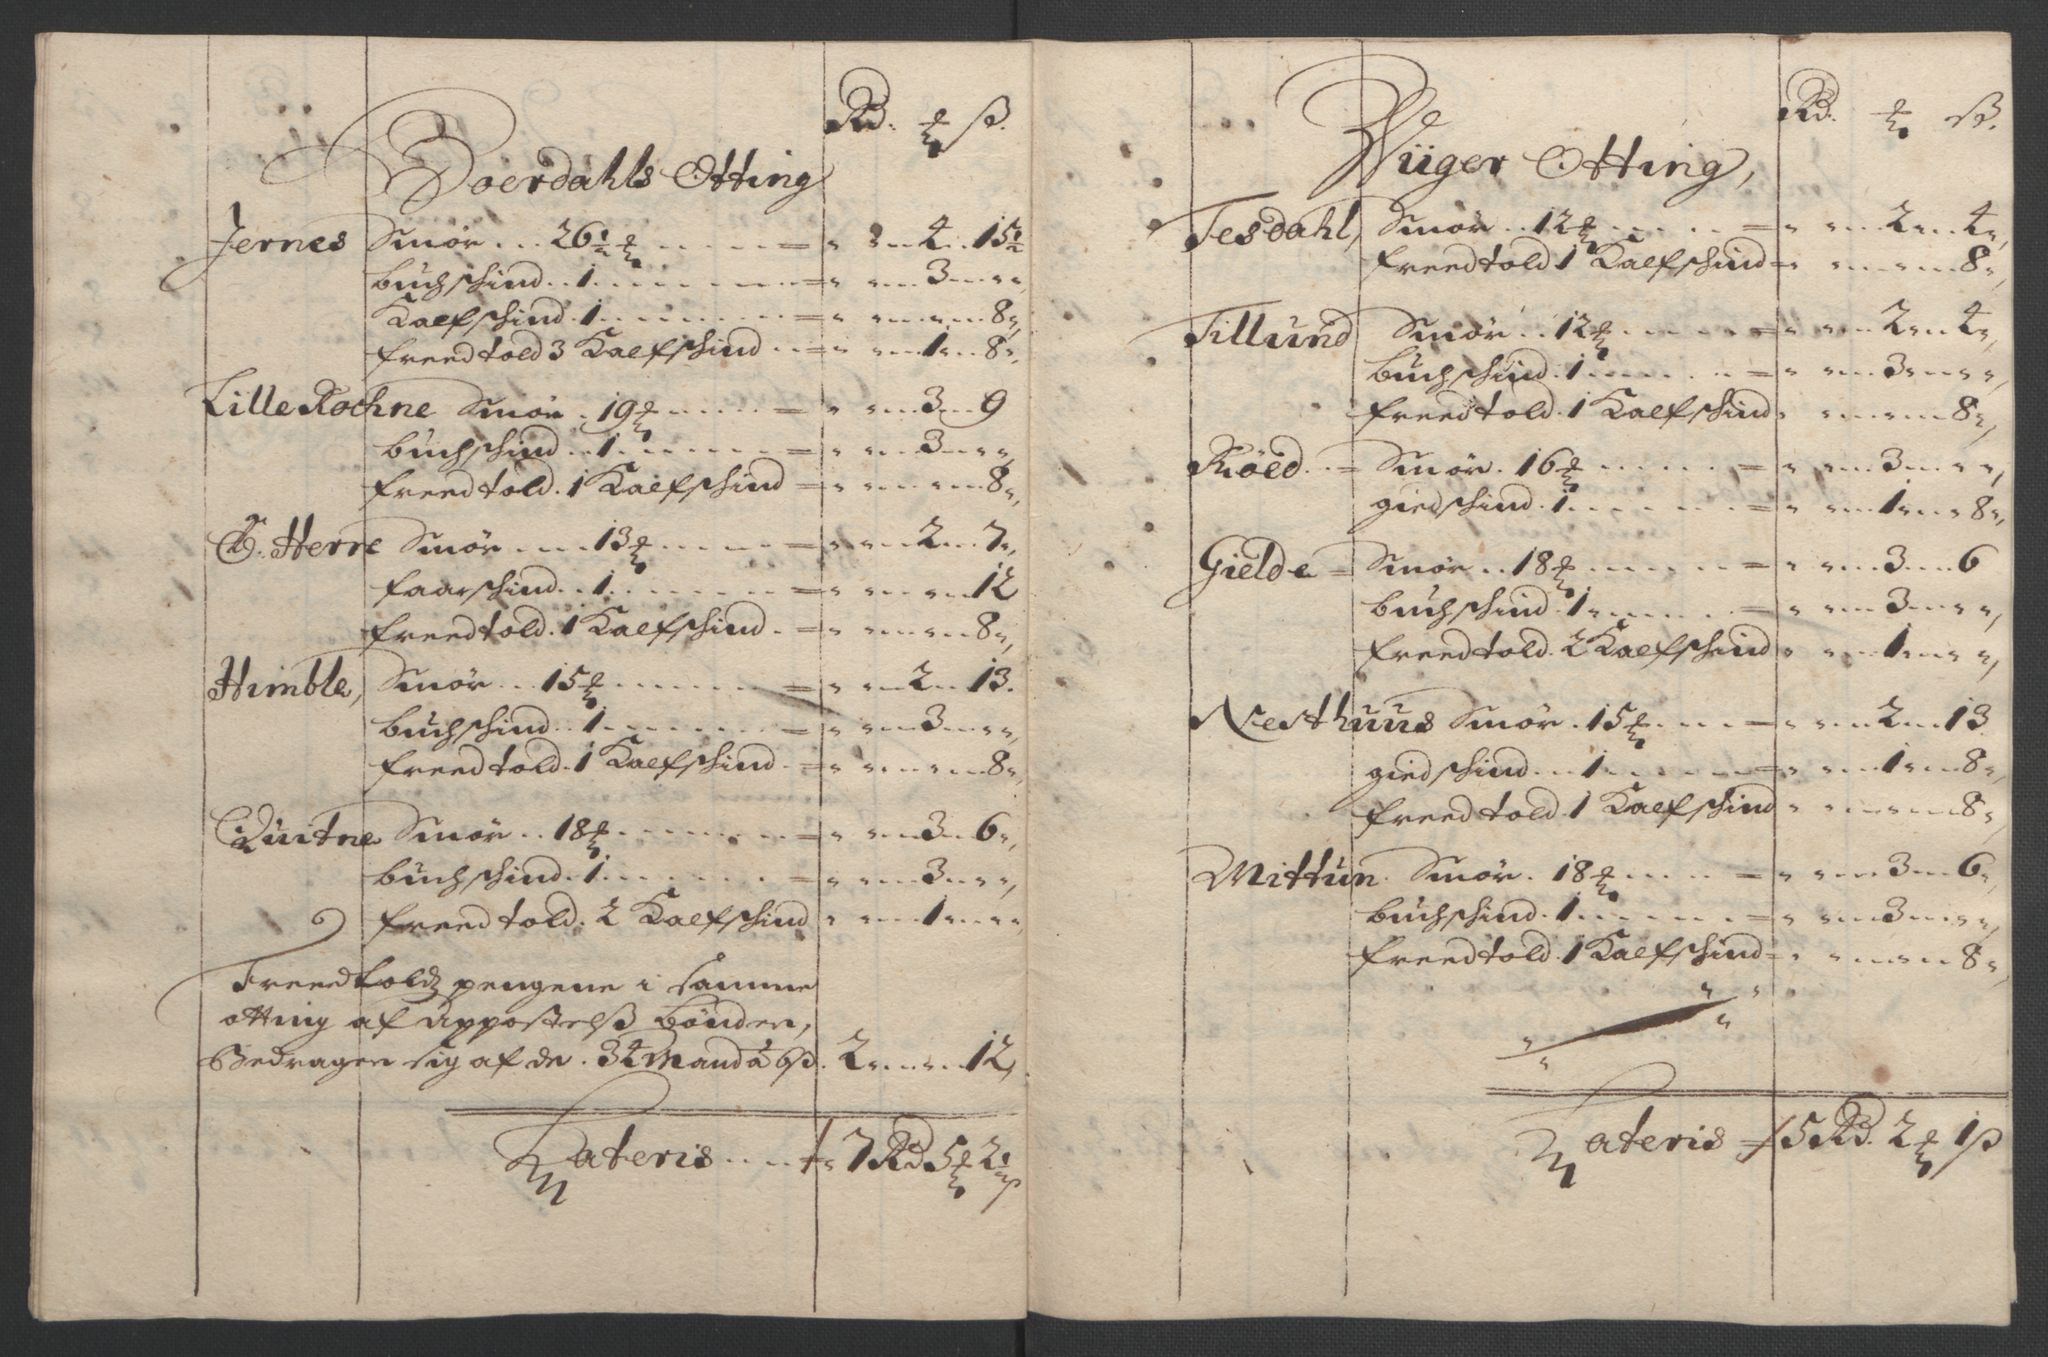 Rd. ℔ ß.
Boerdahls Otting
Jernes Smør ... 26½ ℔ ..... = " " 4 " 15½
buchschind .. 1 ........ = " " 3 " "
Kalfschind . 1 ........ = " " " 8 "
freed told 3 Kalfschind .. = " " 1 " 8 "
Lille Rochne Smør . 19 ℔ ..... = " " 3 " 9
buchschind .. 1 ....... = " " 3 " "
freed told . 1 Kalfschind = " " " 8 "
Herre Smør .... 13 ℔ ..... = " " 2 " 7 "
faarschind .. 1 ....... = " " " 12
freed told . 1 Kalfschind . = " " " 8 "
Himble, Smør ... 15 ℔ ...... = " " 2 " 13.
buchschind .. 1 ....... = " " 3 " "
freed told . 1 Kalfschind . = " " " 8 "
Quitne Smør .. 18 ℔ ...... = " " 3 " 6 "
buchschind . 1 ....... = " " 3 " "
freed told . 2 Kalfschind " " 1 " "
Freed tolds pengene i samme
otting af Appostelß bønder,
Bedragen sig af de . 34 Mand à 6 ß . 2 " " 12,
Lateris .... 7 Rd 5 ℔ 2½ ß
Rd. ℔ ß.
Wüger Otting,
Tesdahl, Smør .. 12 ℔ .... = " " 2 " 4 "
freed told 1 Kalfschind = " " " 8 "
Tillund Smør .. 12 ℔ ..... = " " 2 " 4 "
buchschind . 1 ...... = " " 3 " "
freed told . 1 Kalfschind " " " 8 "
Röed .. = Smør . 16 ℔ ..... = " " 3 " "
giedschind . 1 ...... = " " 1 " 8 "
Gielde = Smør .. 18 ℔ ..... = " " 3 " 6
buchschind . 1 ..... = " " 3 " "
freed told . 2 Kalfschind " " 1 " "
Nesthuus Smør . 15 ℔ .... = " " 2 " 13
giedschind ... 1 ..... = " " 1 " 8 "
freed told . 1 Kalfschind " " " 8 "
Mittun . Smør . 18 ℔ .... = " " 3 " 6 "
buchschind . 1 ...... = " " 3 " "
freed told . 1 Kalfschind = " " " 8 "
Lateris = 5 Rd. 2 ℔ 1 ß